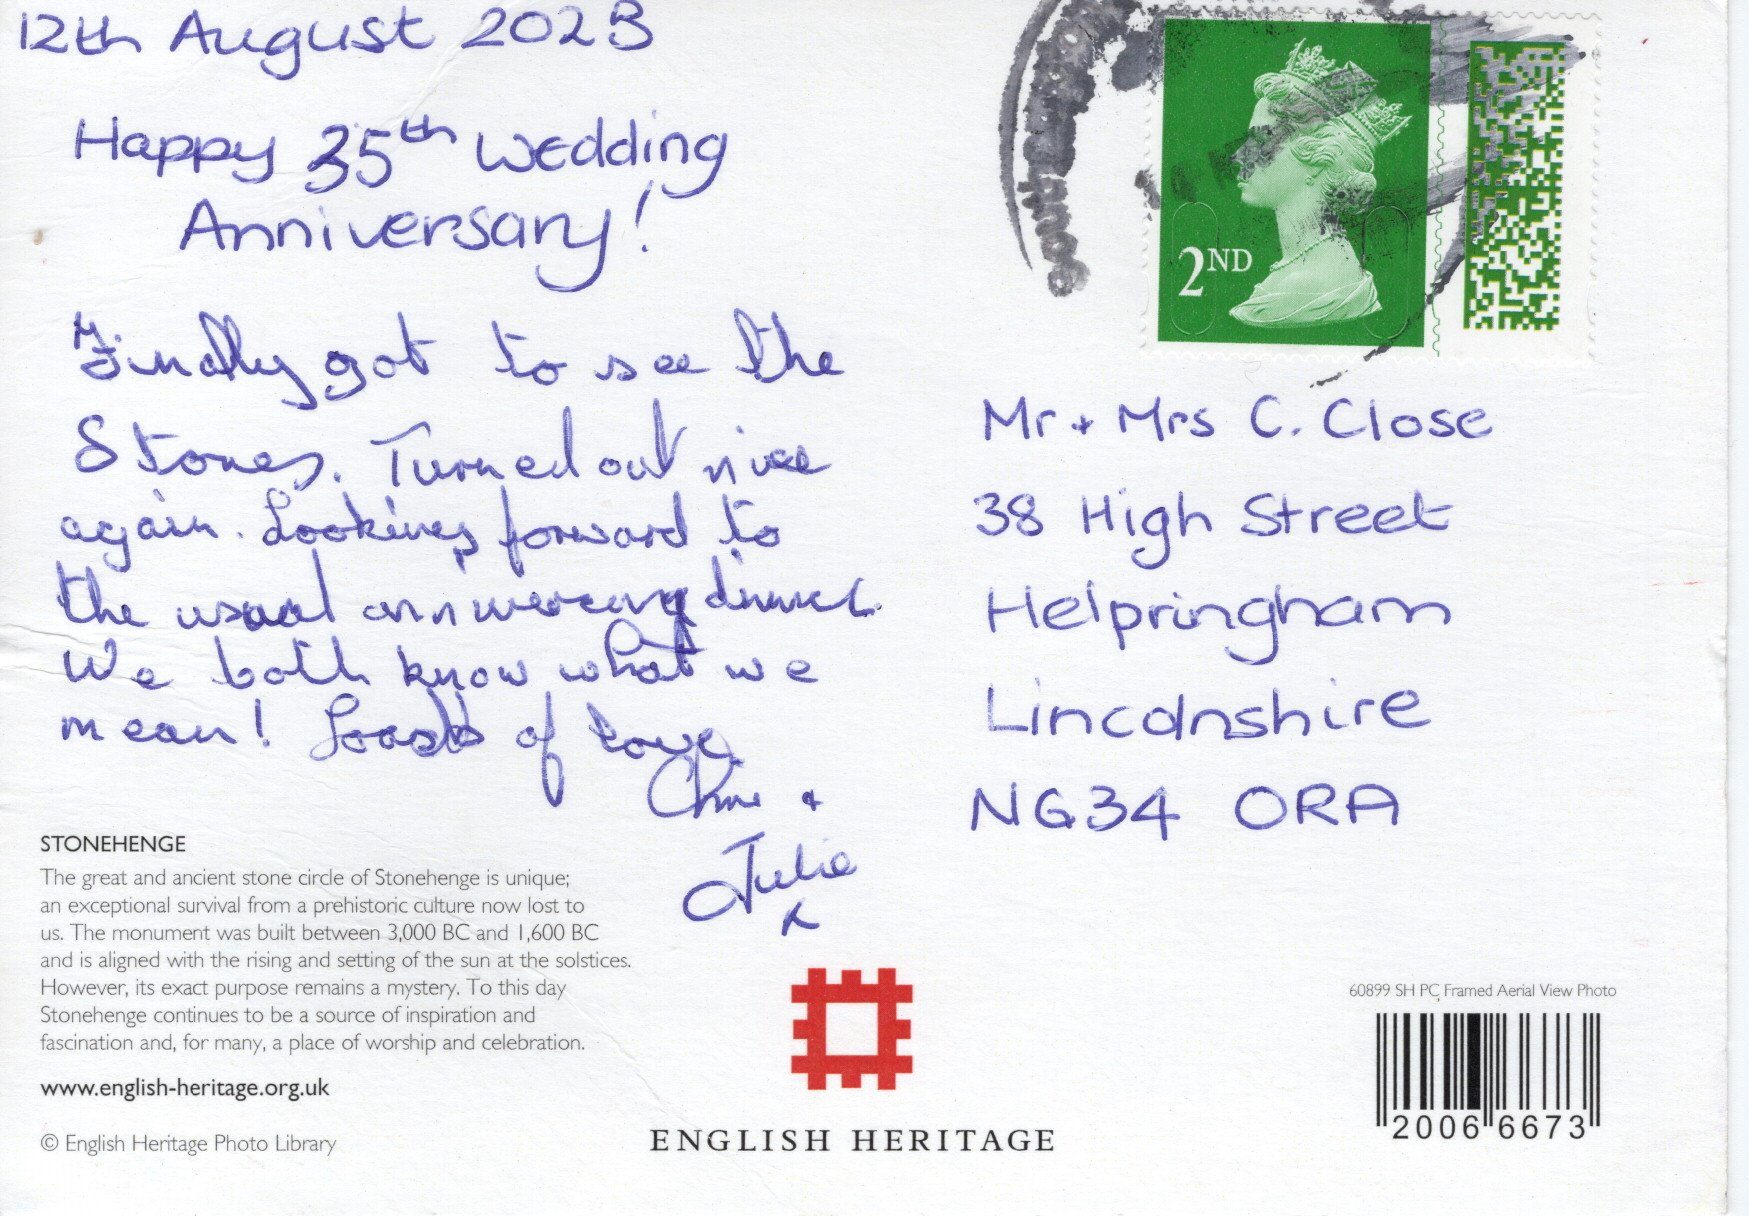 12th August 2023
Happy 35th Wedding
Anniversary!
Finally got to see the
Stones. Turned out nice
again. Looking forward to
the usual anniversary dinner.
We both know what we
mean! Loads of love
Chris +
Julie
x
2ND
Mr + Mrs C. Close
38 High Street
Helpringham
Lincolnshire
NG34 0RA
STONEHENGE
The great and ancient stone circle of Stonehenge is unique;
an exceptional survival from a prehistoric culture now lost to
us. The monument was built between 3,000 BC and 1,600 BC
and is aligned with the rising and setting of the sun at the solstices.
However, its exact purpose remains a mystery. To this day
Stonehenge continues to be a source of inspiration and
fascination and, for many, a place of worship and celebration.
www.english-heritage.org.uk
© English Heritage Photo Library
ENGLISH HERITAGE
60899 SH PC Framed Aerial View Photo
20066673